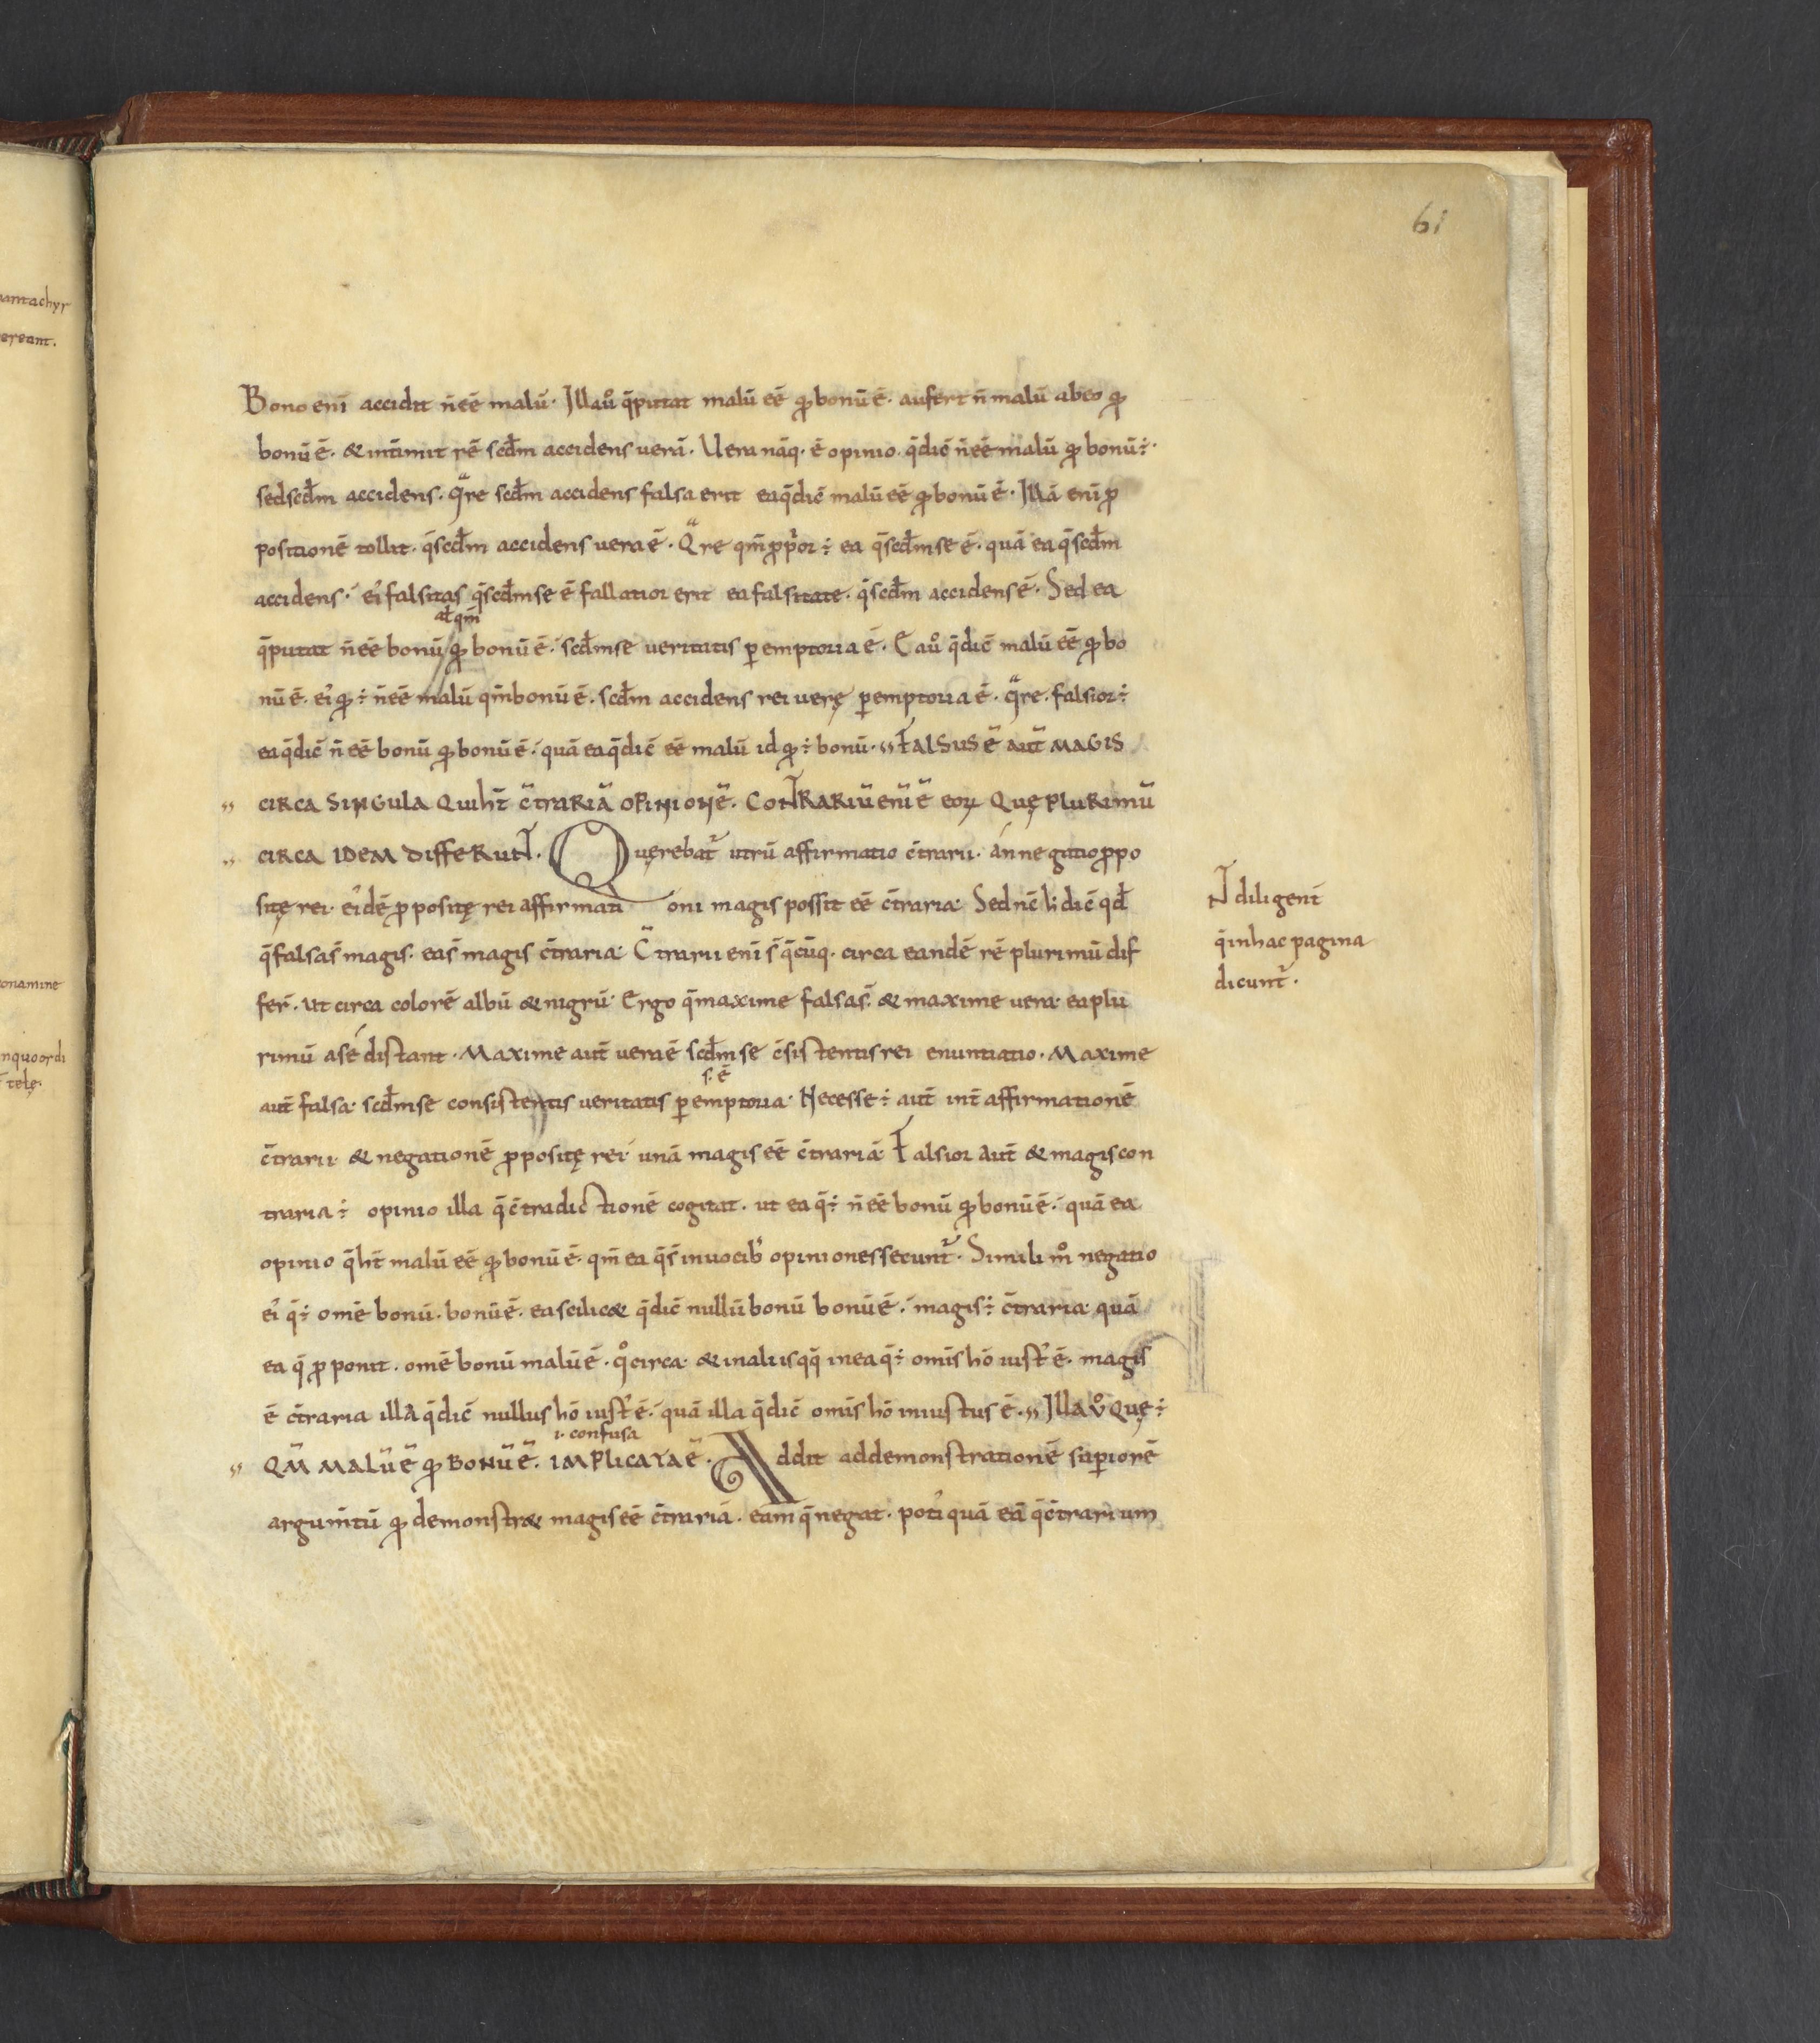 61
Bono enī accidit n̄ eē malū. Illa uº q̄ putat malū eē qđ bonū ē. aufert n̄ malū ab eo qđ
bonū ē. & intimit rē scđm accidens uerā. Uera nāq. ē opinio. q̄ dic̄ n̄ eē malū qđ bonū ÷.
sed scđm accidens. qᵃre scđm accidens falsa erit ea q̄ dic̄ malū eē qđ bonū ē. Illā enī ꝓ
positionē tollit. q̄ scđm accidens uera ē. Qᵃre qm̄ ꝓpⁱor ÷ ea q̄ scđm se ē. quā ea q̄ scđm
accidens. ei᾿ falsitas q̄ scđm se ē fallatior erit ea falsitate. q̄ scđm accidens ē. Sed ea
aƚ qm̄
q̄ putat n̄ eē bonū qđ bonū ē. scđm se ueritatis ꝑemptoria ē. Ea uº q̄ dic̄ malū eē qđ bo
nū ē. ei᾿ qđ ÷ n̄ eē malū qm̄ bonū ē. scđm accidens rei uerę ꝑemptoria ē. qᵃre. falsior ÷
ea q̄ dic̄ n̄ eē bonū qđ bonū ē. quā ea q̄ dic̄ eē malū id qđ ÷ bonū. ,, FALSUS Ē AUT̄ MAGIS
,, CIRCA SINGULA QUI HT̄ C̄TRARIĀ OPINIONĒ. CONTRARIŪ ENĪ Ē EOꝜ QUĘ PLURIMŪ
,, CIRCA IDEM DIFFERUNT. Quęrebat᾿ utrū affirmatio c̄trarii. án negatio ꝓpo
sitę rei. ei᾿dē ꝓpositę rei affirmati oni magis possit eē c̄traria. Sed nc̄ h; dic̄ qđ
q̄ falsa s̄ magis. ea s̄ magis c̄traria. C̄trarii enī s̄ q̄cūq. circa eandē rē plurimū dif
fer̄. ut circa colorē albū & nigrū. Ergo q̄ maxime falsa s̄. & maxime uera. ea plu
rimū a sé distant. Maxime aut̄ uera ē scđm se c̄sistentis rei enuntiatio. Maxime
s. ē
aut̄ falsa. scđm se consistentis ueritatis ꝑemptoria. Necesse ÷ aut̄ int̄ affirmationē
c̄trarii. & negationē ꝓpositę rei. unā magis eē c̄trariā. Falsior aut̄ & magis con
traria ÷ opinio illa q̄ c̄tradictionē cogitat. ut ea q̄ ÷ n̄ eē bonū qđ bonū ē. quā ea
opinio q̄ ht̄ malū eē qđ bonū ē. qm̄ ea q̄ s̄ in uocib᾿ opiniones secunt᾿. Simili mº negatio
ei᾿ q̄ ÷ omē bonū. bonū ē. ea scilic& q̄ dic̄ nullū bonū bonū ē. magis ÷ c̄traria. quā
ea q̄ ꝓponit. omē bonū malū ē. qºcirca. & in aliis qq̄ in ea q̄ ÷ omīs hō iust᾿ ē. magis
ē c̄traria illa q̄ dic̄ nullus hō iust᾿ ē. quā illa q̄ dic̄ omīs hō iniustus ē. ,, Illa uº quę ÷
i. confusa
,, QM̄ MALŪ Ē QĐ BONŪ Ē. IMPLICATA Ē. Addit ad demonstrationē suꝑiorē
argum̄tū qđ demonstr& magis eē c̄trariā. eam q̄ negat. poti᾿ quā eā q̄ c̄trarium
NT diligent̄
q̄ in hac pagina
dicunt᾿.
antachyr
ereant.
onamine
nquo ordi
telę.